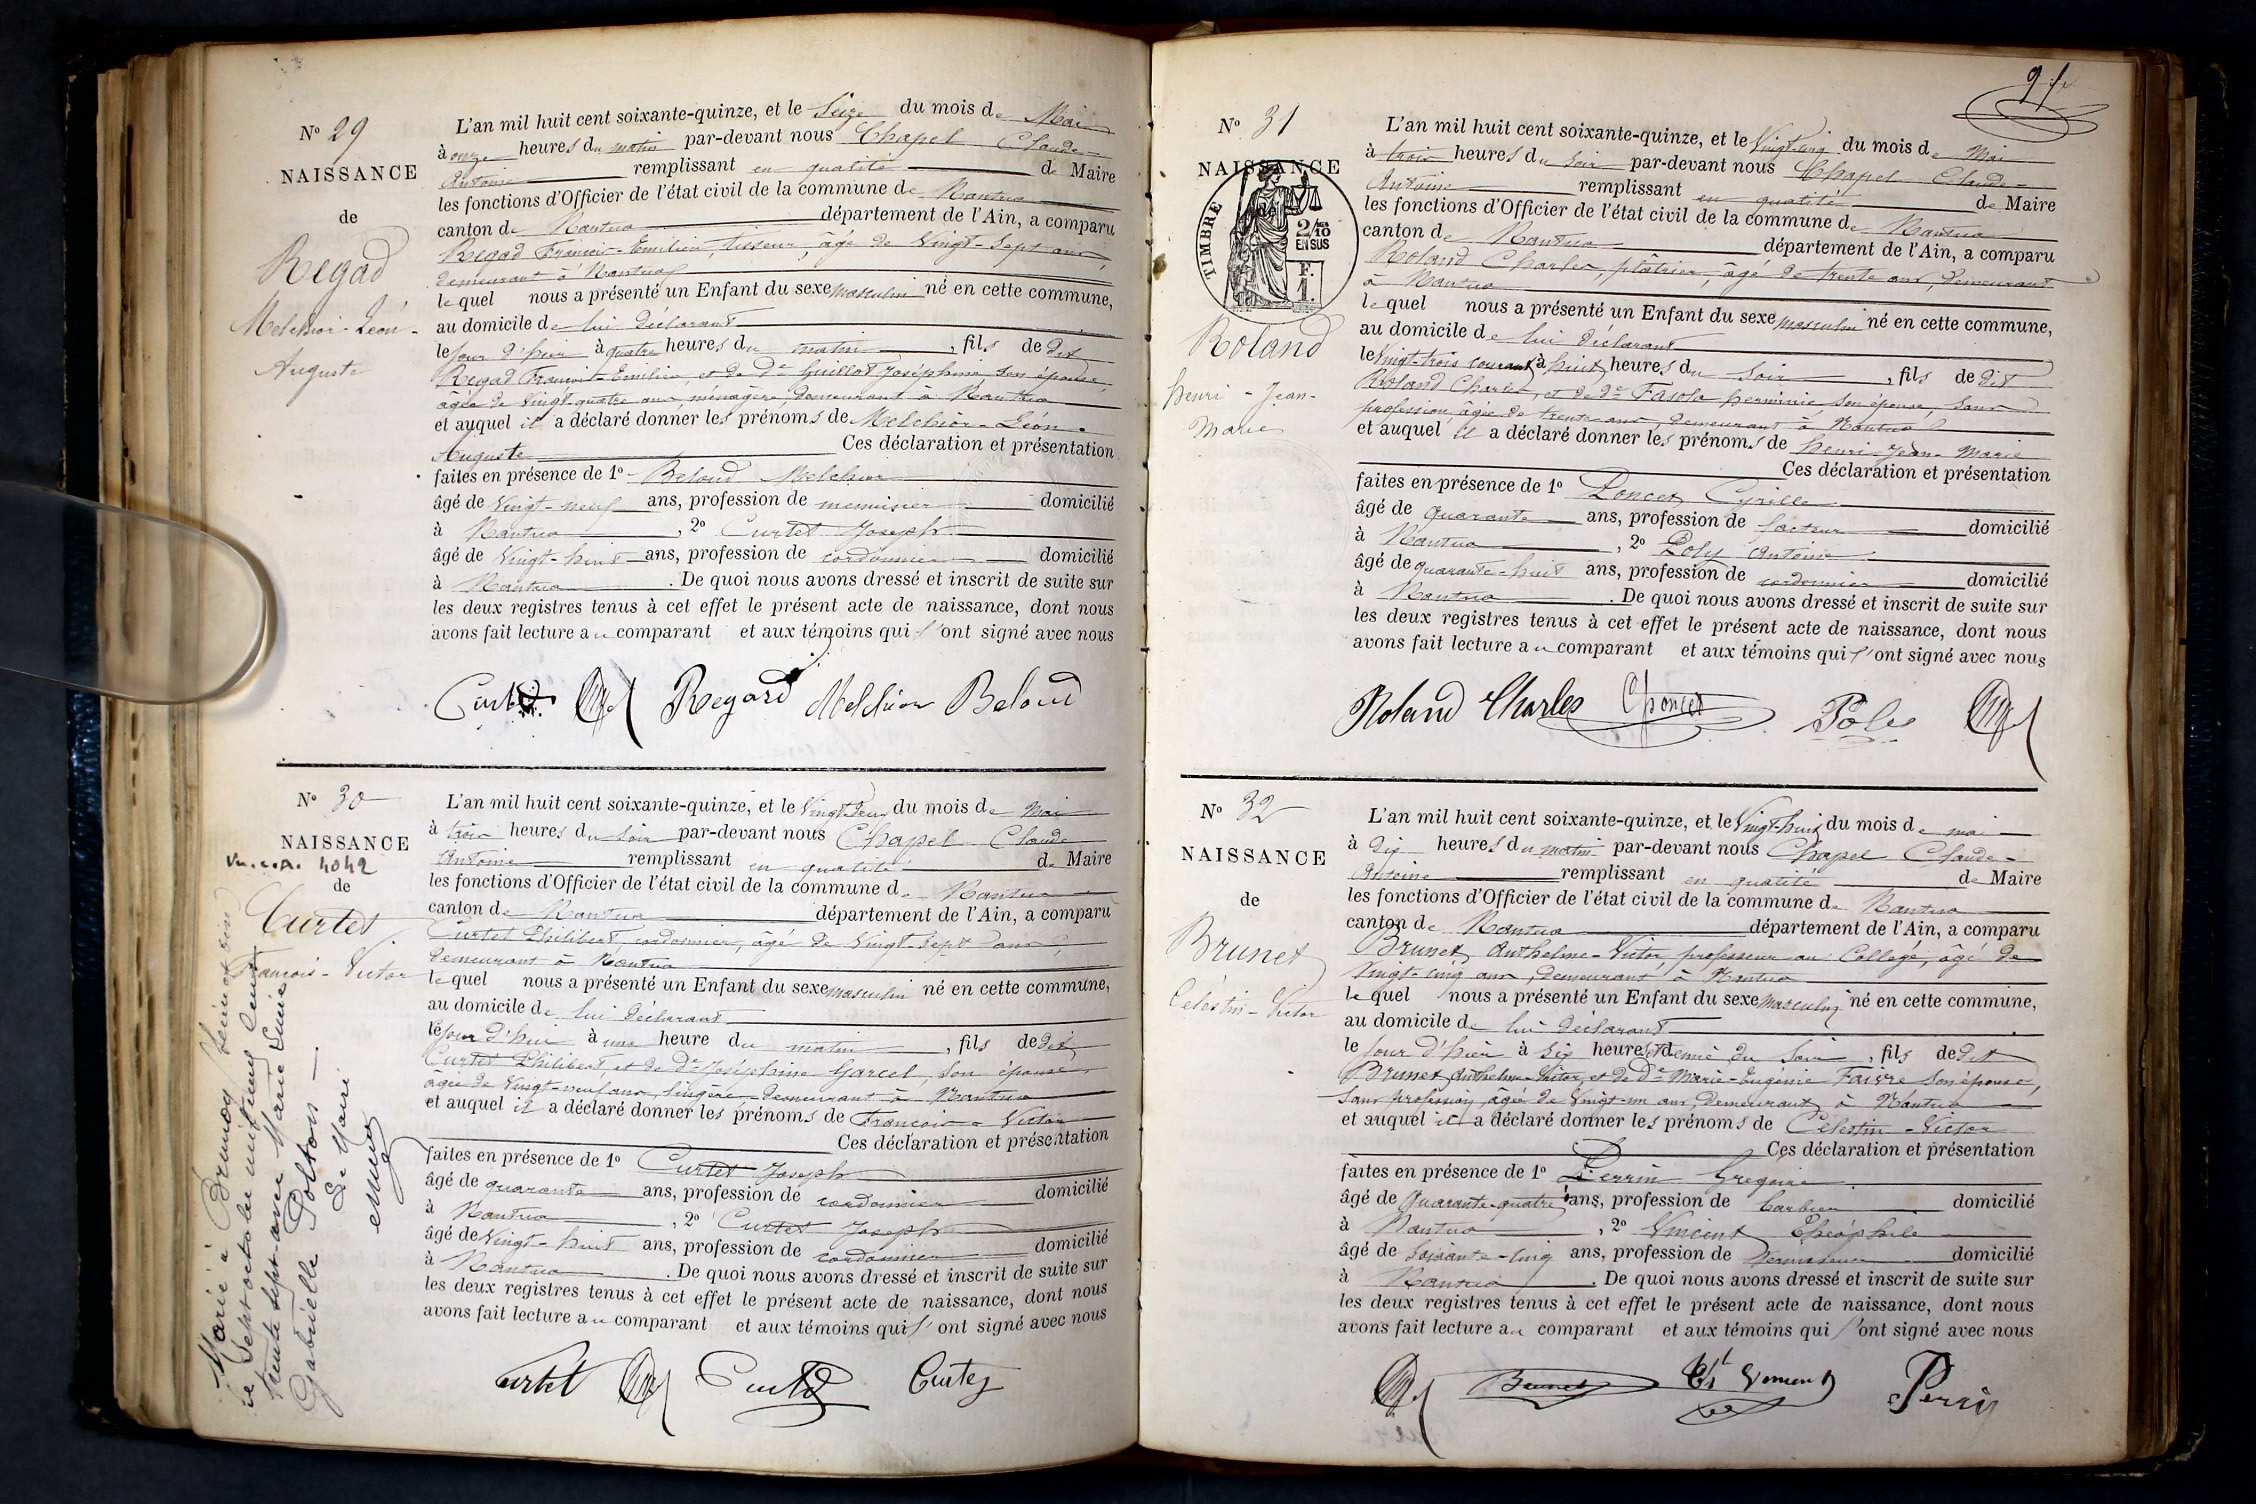 Nº 29
NAISSANCE
de
Regad
Melchior-Léon-
Auguste
L'an mil huit cent soixante-quinze, et le Seize du mois de Mai
à onze heures du matin par-devant nous Chapel Claude
Antoine remplissant en qualité de Maire
les fonctions d'Officier de l'état civil de la commune de Nantua
canton de Nantua département de l'Ain, a comparu
Regad François-Emilien, tisseur, âgé de Vingt-Sept ans,
demeurant à Nantua
lequel nous a présenté un Enfant du sexe masculin né en cette commune,
au domicile de lui déclarant
le jour d'hier à quatre heures du matin, fils de dit
Regad François-Emilien, et de De Guillot Joséphine son épouse,
âgée de Vingt-quatre ans, ménagère, demeurant à Nantua
et auquel il a déclaré donner les prénoms de Melchior-Léon-
Auguste Ces déclaration et présentation
faites en présence de 1º Beloud Melchior
âgé de Vingt-neuf ans, profession de menuisier domicilié
à Nantua, 2º Curtet Joseph
âgé de Vingt-huit ans, profession de cordonnier domicilié
à Nantua. De quoi nous avons dressé et inscrit de suite sur
les deux registres tenus à cet effet le présent acte de naissance, dont nous
avons fait lecture au comparant et aux témoins qui l'ont signé avec nous
Regard Melchior Beloud
Nº 30
NAISSANCE
4042
de
Curtet
François-Victor
Marié à Brunoy
le Sept octobre mil neuf cent
trente sept avec Marie Lucie
Gabrielle Polton
Le Maire
L'an mil huit cent soixante-quinze, et le Vingt Deux du mois de Mai
à trois heures du soir par-devant nous Chapel Claude
Antoine remplissant en qualité de Maire
les fonctions d'Officier de l'état civil de la commune de Nantua
canton de Nantua département de l'Ain, a comparu
Curtet Philibert, cordonnier, âgé de Vingt Sept ans,
demeurant à Nantua
lequel nous a présenté un Enfant du sexe masculin né en cette commune,
au domicile de lui déclarant
le jour d'hui à une heure du matin, fils de dit
Curtet Philibert, et de De Joséphine Garcel, son épouse,
âgée de Vingt-neuf ans, lingère, demeurant à Nantua
et auquel il a déclaré donner les prénoms de François-Victor
Ces déclaration et présentation
faites en présence de 1º Curtet Joseph
âgé de quarante ans, profession de cordonnier domicilié
à Nantua, 2º Curtet Joseph
âgé de Vingt-huit ans, profession de cordonnier domicilié
à Nantua. De quoi nous avons dressé et inscrit de suite sur
les deux registres tenus à cet effet le présent acte de naissance, dont nous
avons fait lecture au comparant et aux témoins qui l'ont signé avec nous
Curtet Curtet
91
Nº 31
NAISSANCE
TIMBRE
2/10
EN SUS
F.
1.
Roland
henri-Jean-
Marie
L'an mil huit cent soixante-quinze, et le Vingt-cinq du mois de Mai
à trois heures du soir par-devant nous Chapel Claude-
Antoine remplissant en qualité de Maire
les fonctions d'Officier de l'état civil de la commune de Nantua
canton de Nantua département de l'Ain, a comparu
Roland Charles, plâtrier, âgé de trente ans, demeurant
à Nantua
lequel nous a présenté un Enfant du sexe masculin né en cette commune,
au domicile de lui déclarant
le Vingt-trois courant à huit heures du soir, fils de dit
Roland Charles, et de De Fasola herminie son épouse, sans
profession, âgée de trente ans, demeurant à Nantua
et auquel il a déclaré donner les prénoms de henri-Jean-Marie
Ces déclaration et présentation
faites en présence de 1º Poncet Cyrille
âgé de quarante ans, profession de facteur domicilié
à Nantua, 2º Poly Antoine
âgé de quarante-huit ans, profession de cordonnier domicilié
à Nantua. De quoi nous avons dressé et inscrit de suite sur
les deux registres tenus à cet effet le présent acte de naissance, dont nous
avons fait lecture au comparant et aux témoins qui l'ont signé avec nous
Roland Charles Cponcet
Nº 32
NAISSANCE
de
Brunet
Célestin-Victor
L'an mil huit cent soixante-quinze, et le Vingt-huit du mois de mai
à Dix heures du matin par-devant nous Chapel Claude-
Antoine remplissant en qualité de Maire
les fonctions d'Officier de l'état civil de la commune de Nantua
canton de Nantua département de l'Ain, a comparu
Brunet Anthelme-Victor, professeur au Collège, âgé de
Vingt-cinq ans, demeurant à Nantua
lequel nous a présenté un Enfant du sexe masculin né en cette commune,
au domicile de lui déclarant
le jour d'hier à six heures et demie du soir, fils de dit
Brunet Anthelme-Victor, et de De Marie-Eugénie Faivre son épouse,
sans profession, âgée de Vingt-un ans, demeurant à Nantua
et auquel il a déclaré donner les prénoms de Célestin-Victor
Ces déclaration et présentation
faites en présence de 1º Perrin Grégoire
âgé de Quarante-quatre ans, profession de barbier domicilié
à Nantua, 2º Vincent Théophile
âgé de soixante-cinq ans, profession de domicilié
à Nantua. De quoi nous avons dressé et inscrit de suite sur
les deux registres tenus à cet effet le présent acte de naissance, dont nous
avons fait lecture au comparant et aux témoins qui l'ont signé avec nous
Brunet Vincent Perrin